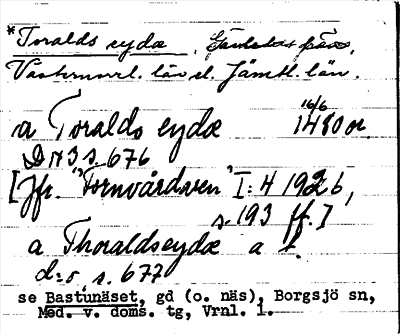 *Toralds eydæ
Västernorrl. län el. Jämtl. län.
a Toralds eydæ 16/6 1480 or.
DN3 s. 676
[Jfr. "Fornvårdaren" I: 4 1926,
s. 193 ff.]
a Thoraldseydæ a f.
d:o, s. 677
se Bastunäset, gd (o. näs), Borgsjö sn,
Med. v. doms. tg, Vrnl. l.